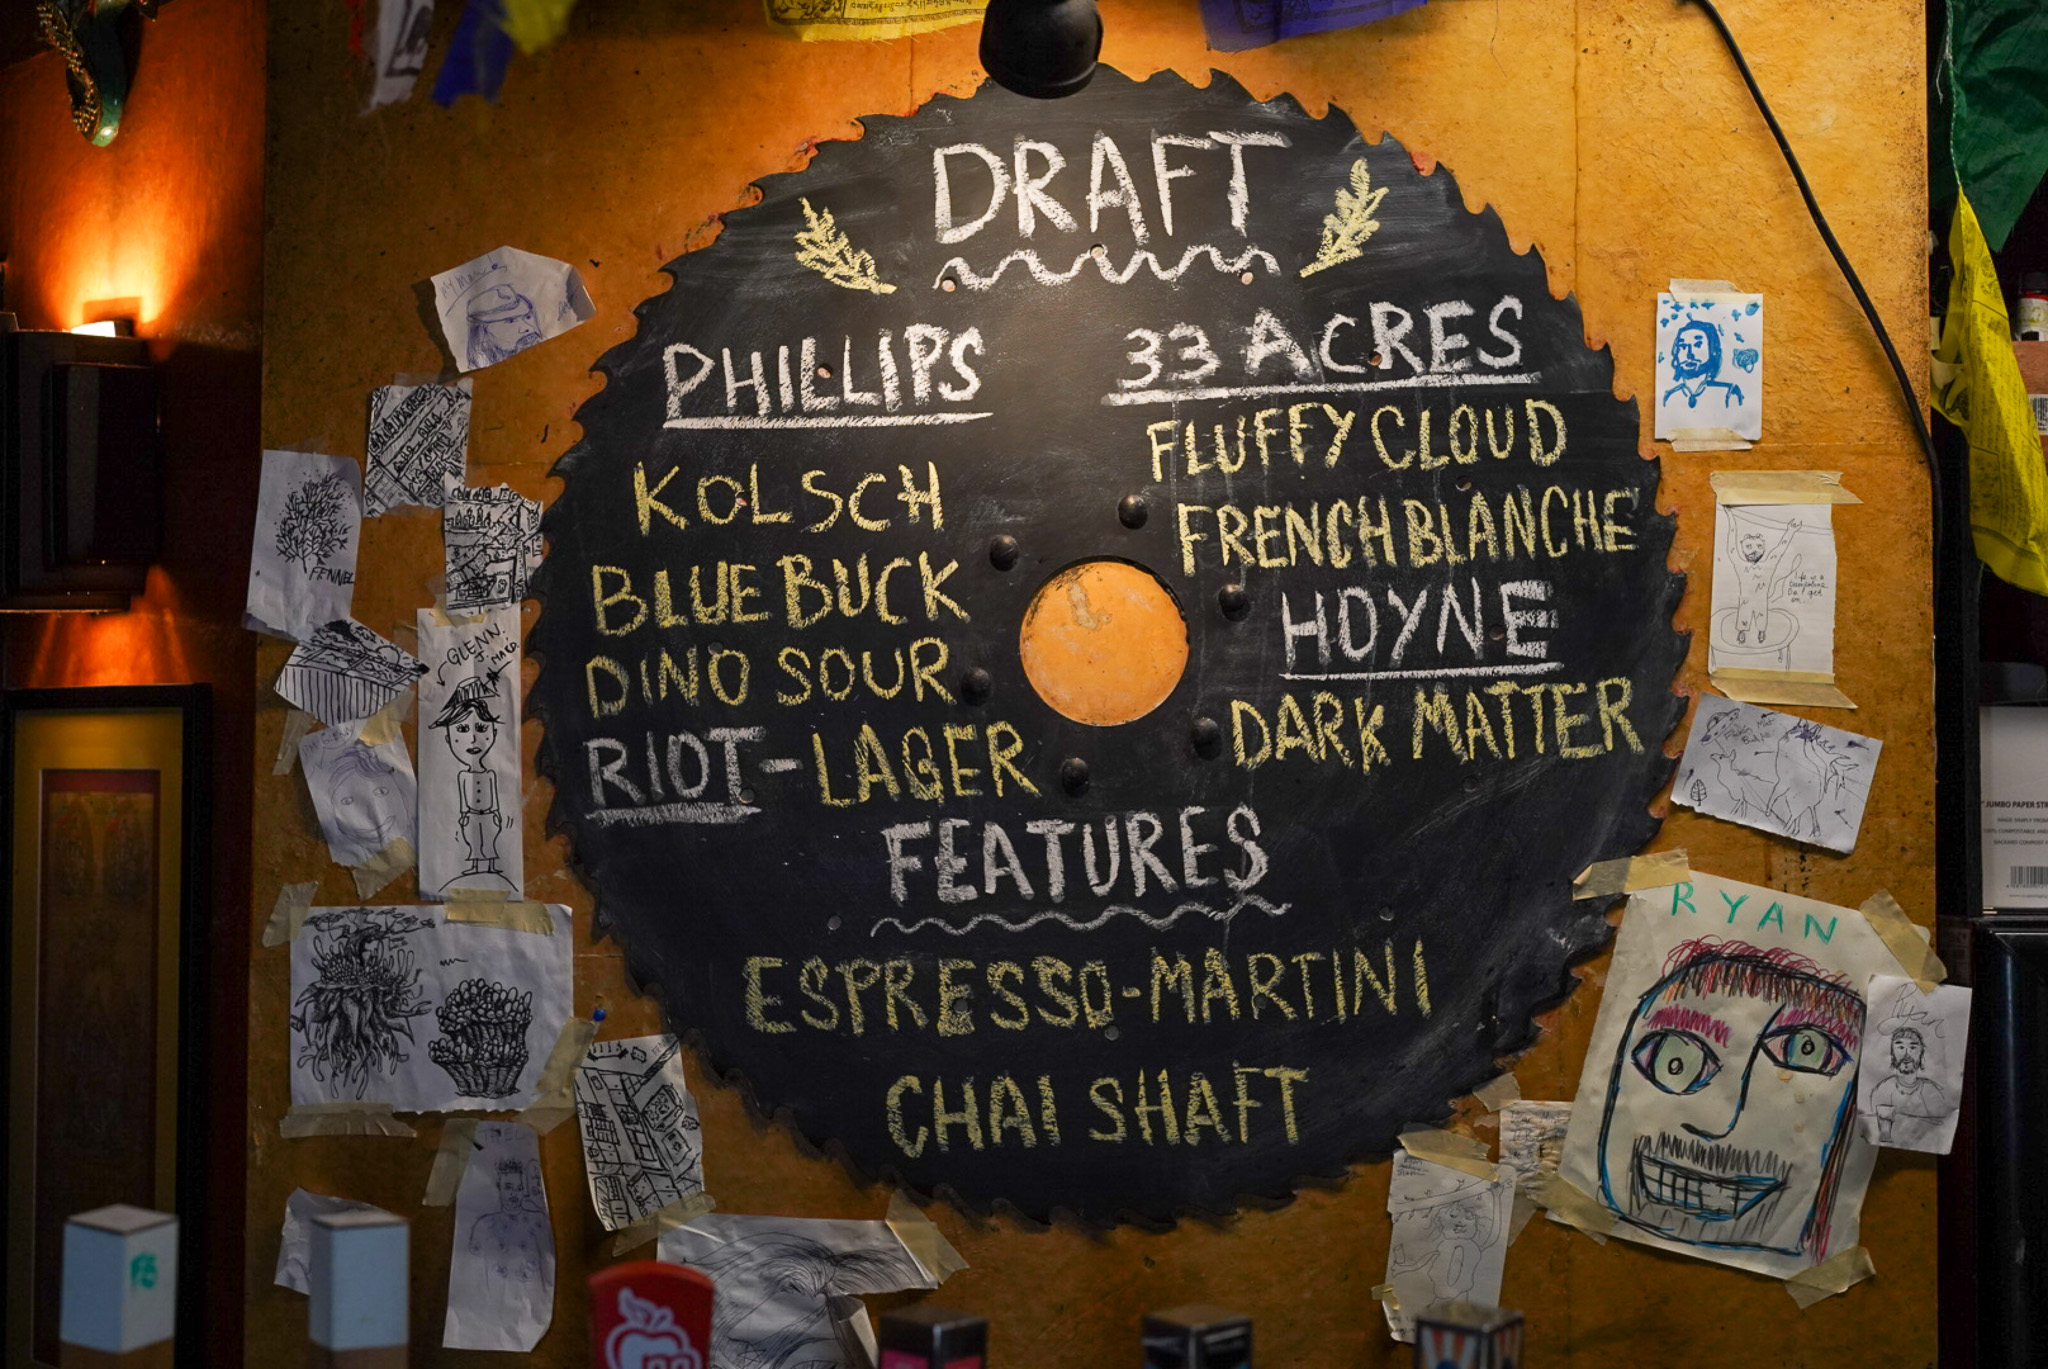 DRAFT
PHILLIPS
KOLSCH
BLUE BUCK
DINO SOUR
RIOT-LAGER
33 ACRES
FLUFFY CLOUD
FRENCH BLANCHE
HOYNE
DARK MATTER
FEATURES
ESPRESSO-MARTINI
CHAI SHAFT
FENNEL
GLENN
RYAN
Ryan
"JUMBO PAPER STR